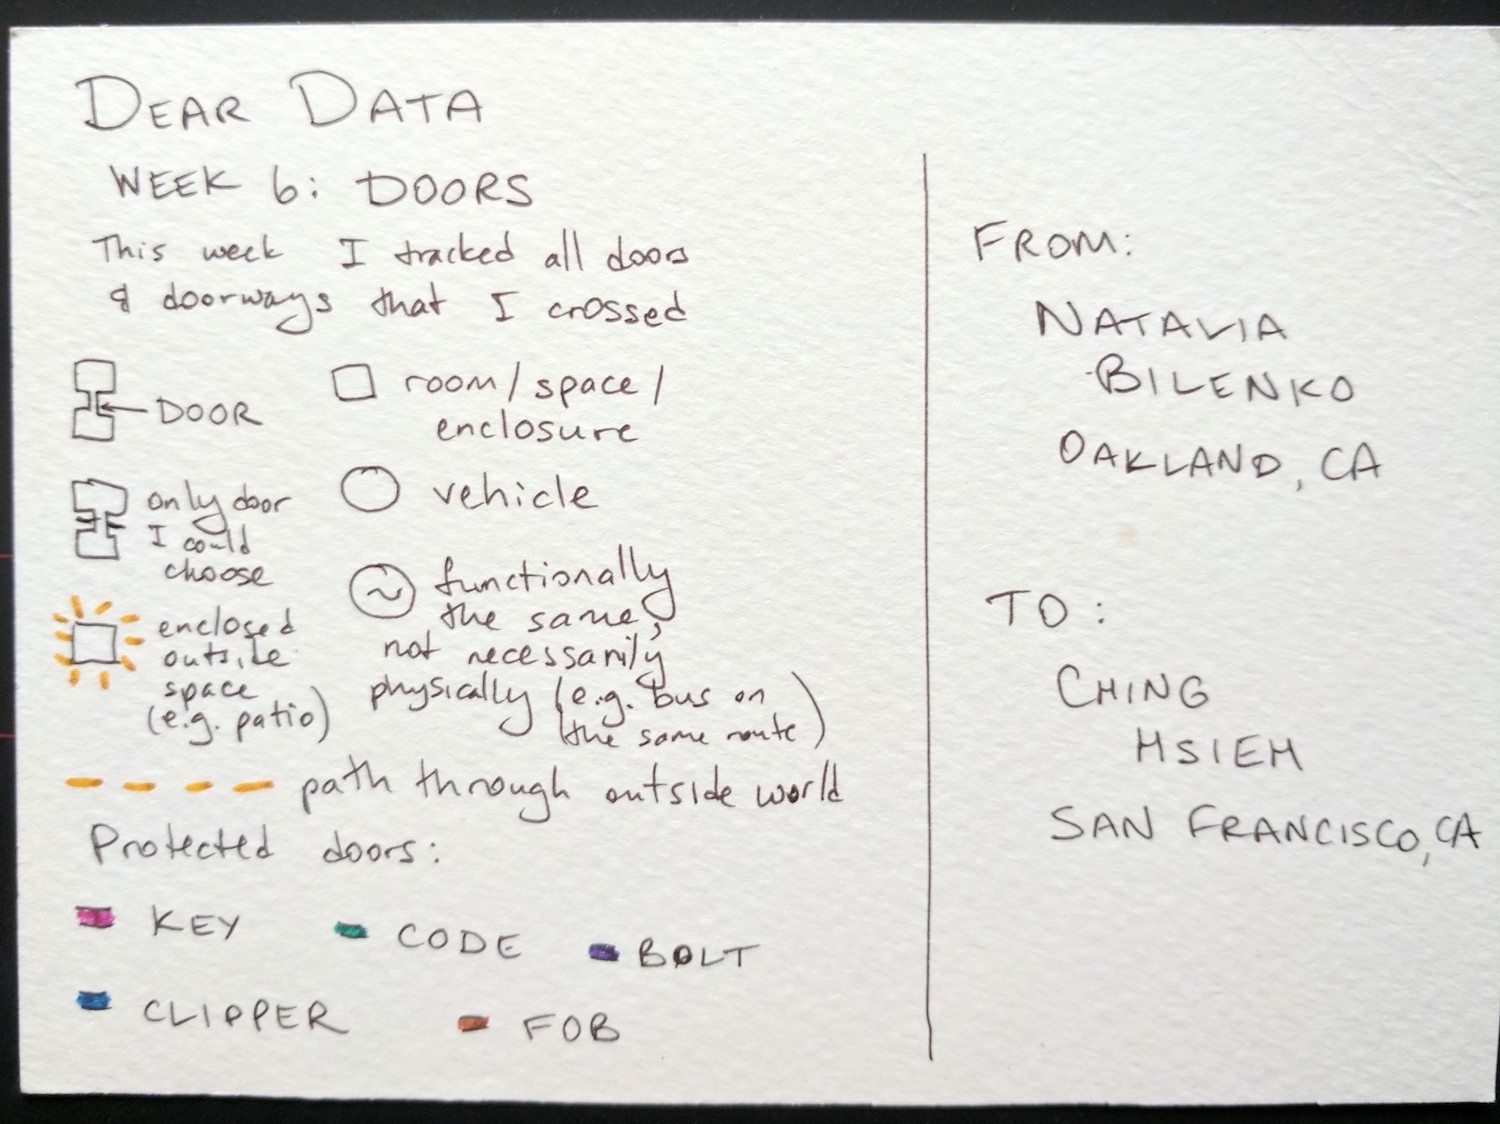 DEAR DATA
WEEK 6: DOORS
This week I tracked all doors
& doorways that I crossed
DOOR
room / space /
enclosure
only door
I could
choose
vehicle
enclosed
outside
space
(e.g. patio)
~ functionally
the same,
not necessarily
physically (e.g. bus on
the same route)
path through outside world
Protected doors:
KEY
CODE
BOLT
CLIPPER
FOB
FROM:
NATALIA
BILENKO
OAKLAND, CA
TO:
CHING
HSIEH
SAN FRANCISCO, CA